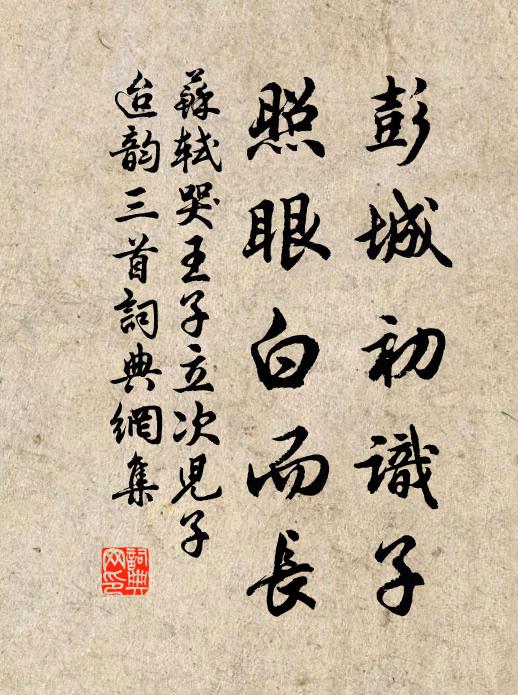 彭城初識子
照眼白而長
蘇軾哭王子立次兒子
迨韵三首詞典網集
詞典网印